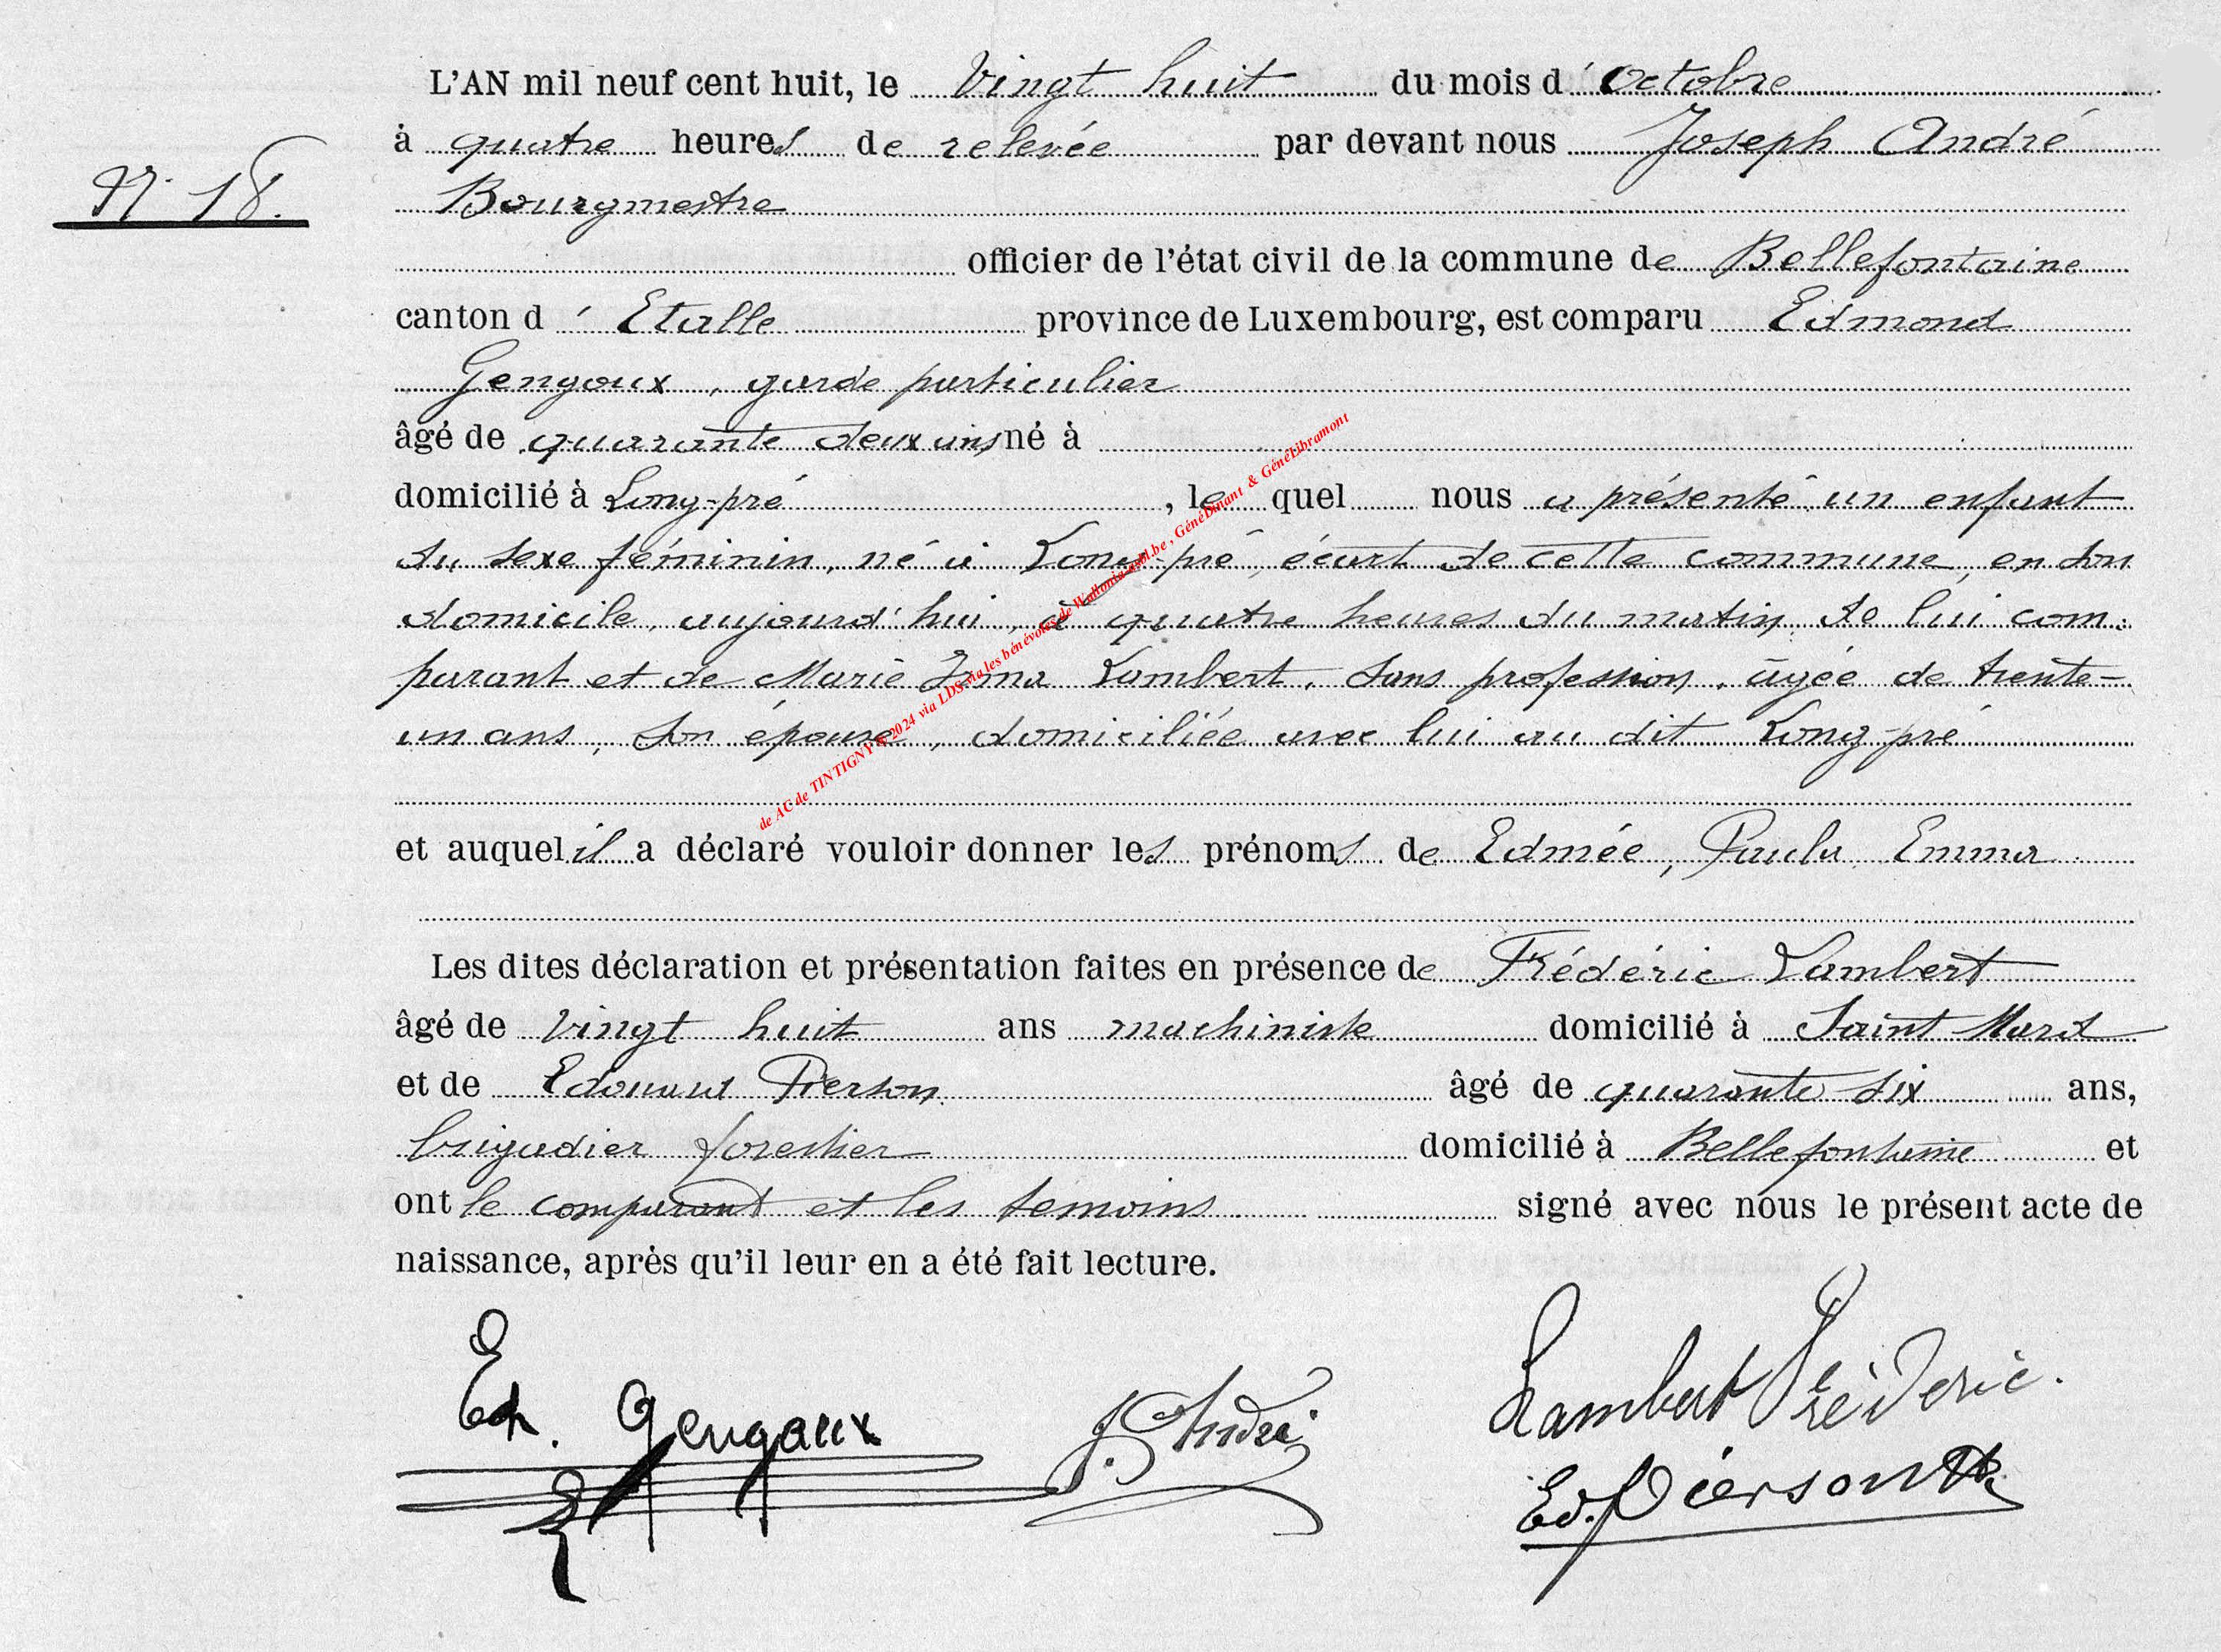 L'AN mil neuf cent huit, le Vingt huit du mois d' Octobre
à quatre heures de relevée par devant nous Joseph André
N. 18.
Bourgmestre
officier de l'état civil de la commune de Bellefontaine
canton d' Etalle province de Luxembourg, est comparu Edmond
Gengoux, garde particulier
âgé de quarante deux ans né à
domicilié à Long-pré, lequel nous a présenté un enfant
du sexe féminin, né à Long-pré, écart de cette commune, en son
domicile, aujourd'hui, à quatre heures du matin, de lui com:
parant et de Marie Irma Lambert, sans profession, âgée de trente-
un ans, son épouse, domiciliée avec lui au dit Long-pré
et auquel il a déclaré vouloir donner les prénoms de Edmée, Paula, Emma
Les dites déclaration et présentation faites en présence de Frédéric Lambert
âgé de Vingt huit ans machiniste domicilié à Saint Mard
et de Edouard Pierson âgé de quarante six ans,
brigadier forestier domicilié à Bellefontaine et
ont le comparant et les témoins signé avec nous le présent acte de
naissance, après qu'il leur en a été fait lecture.
Ed. Gengoux J. André Lambert Fréderic.
Ed. Pierson
de AC de TINTIGNY © 2024 via LDS via les bénévoles de Wallonia-asbl.be, GénéDinant & GénéLibramont